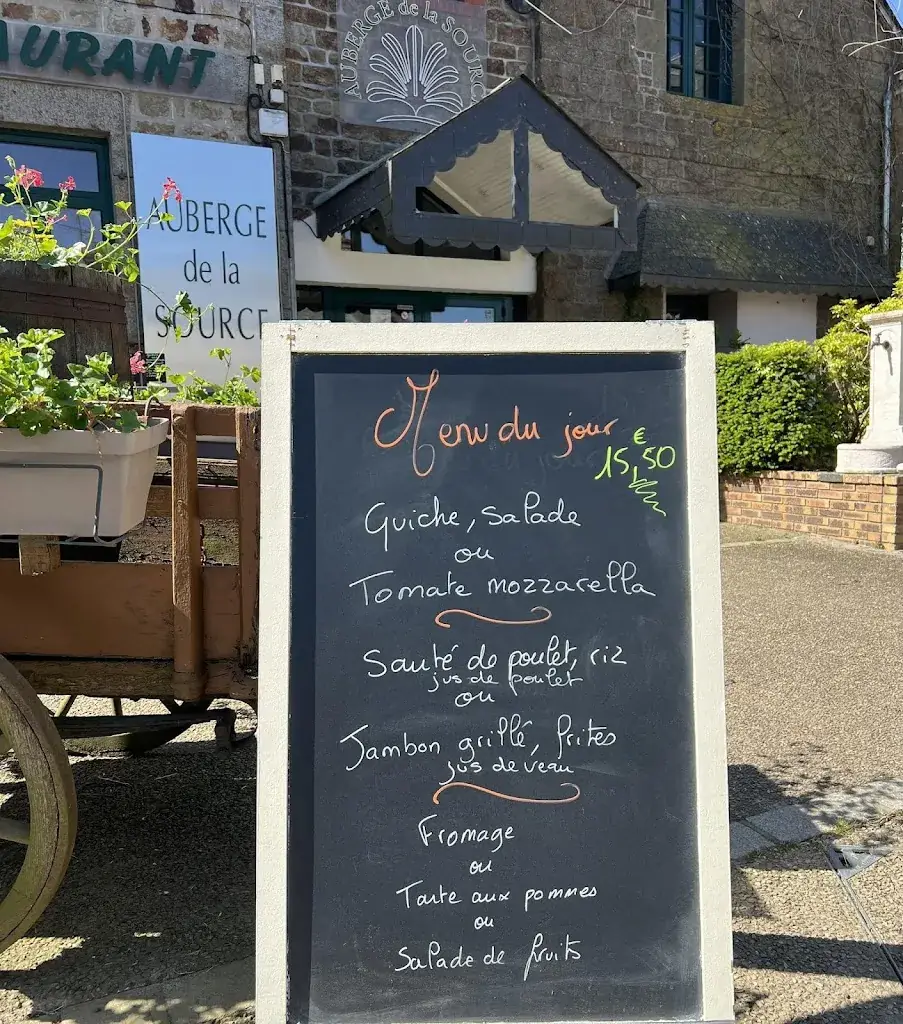 AURANT
AUBERGE de la SOURCE
AUBERGE
de la
SOURCE
Menu du jour
15,50 €
Quiche, salade
ou
Tomate mozzarella
Sauté de poulet, riz
jus de poulet
ou
Jambon grillé, frites
jus de veau
Fromage
ou
Tarte aux pommes
ou
Salade de fruits